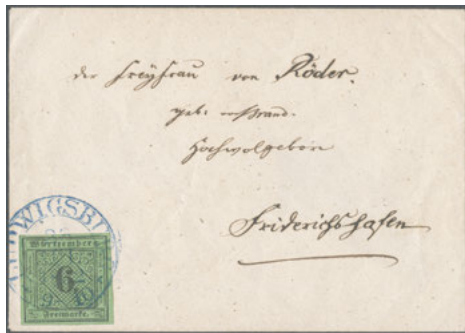 der Freÿfrau von Röder.
geb:
Hochwolgeborn
Friderichshafen
LUDWIGSBU
Württemberg
6
Freimarke.